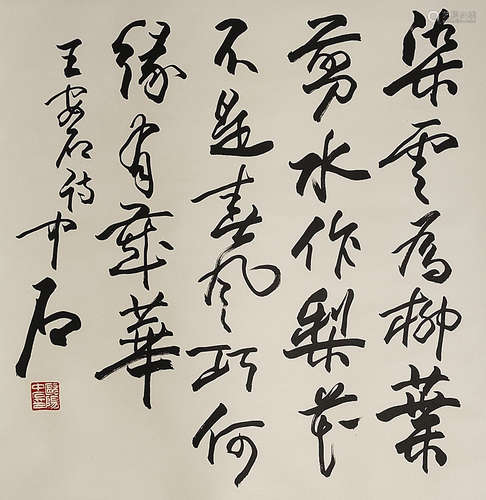 染雲為柳葉
剪水作梨花
不是春風巧何
緣有歲華
王安石詩中
石